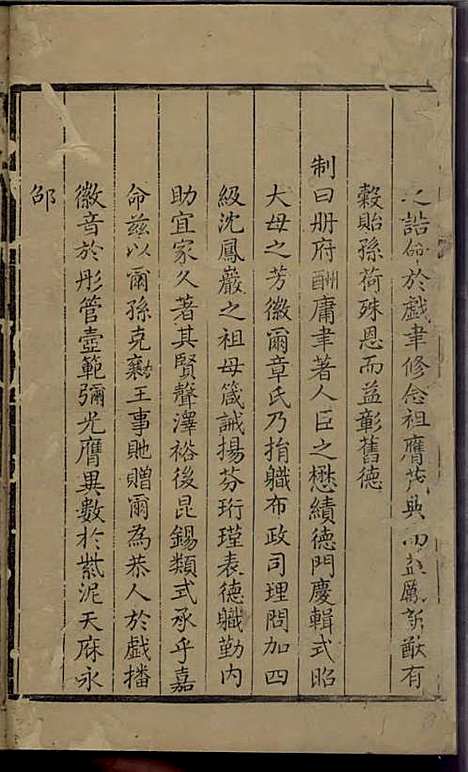 之誥命於戲聿修念祖膺茂典而益厲新猷有
穀貽孫荷殊恩而益彰舊德
制曰册府酬庸聿著人臣之懋績德門慶輯式昭
大母之芳徽爾章氏乃捐職布政司理問加四
級沈鳳巖之祖母箴誡揚芬珩瑾表德職勤內
助宜家久著其賢聲澤裕後昆錫類式承乎嘉
命茲以爾孫克勷王事貤贈爾為恭人於戲播
徽音於彤管壼範彌光膺異數於紫泥天庥永
邵